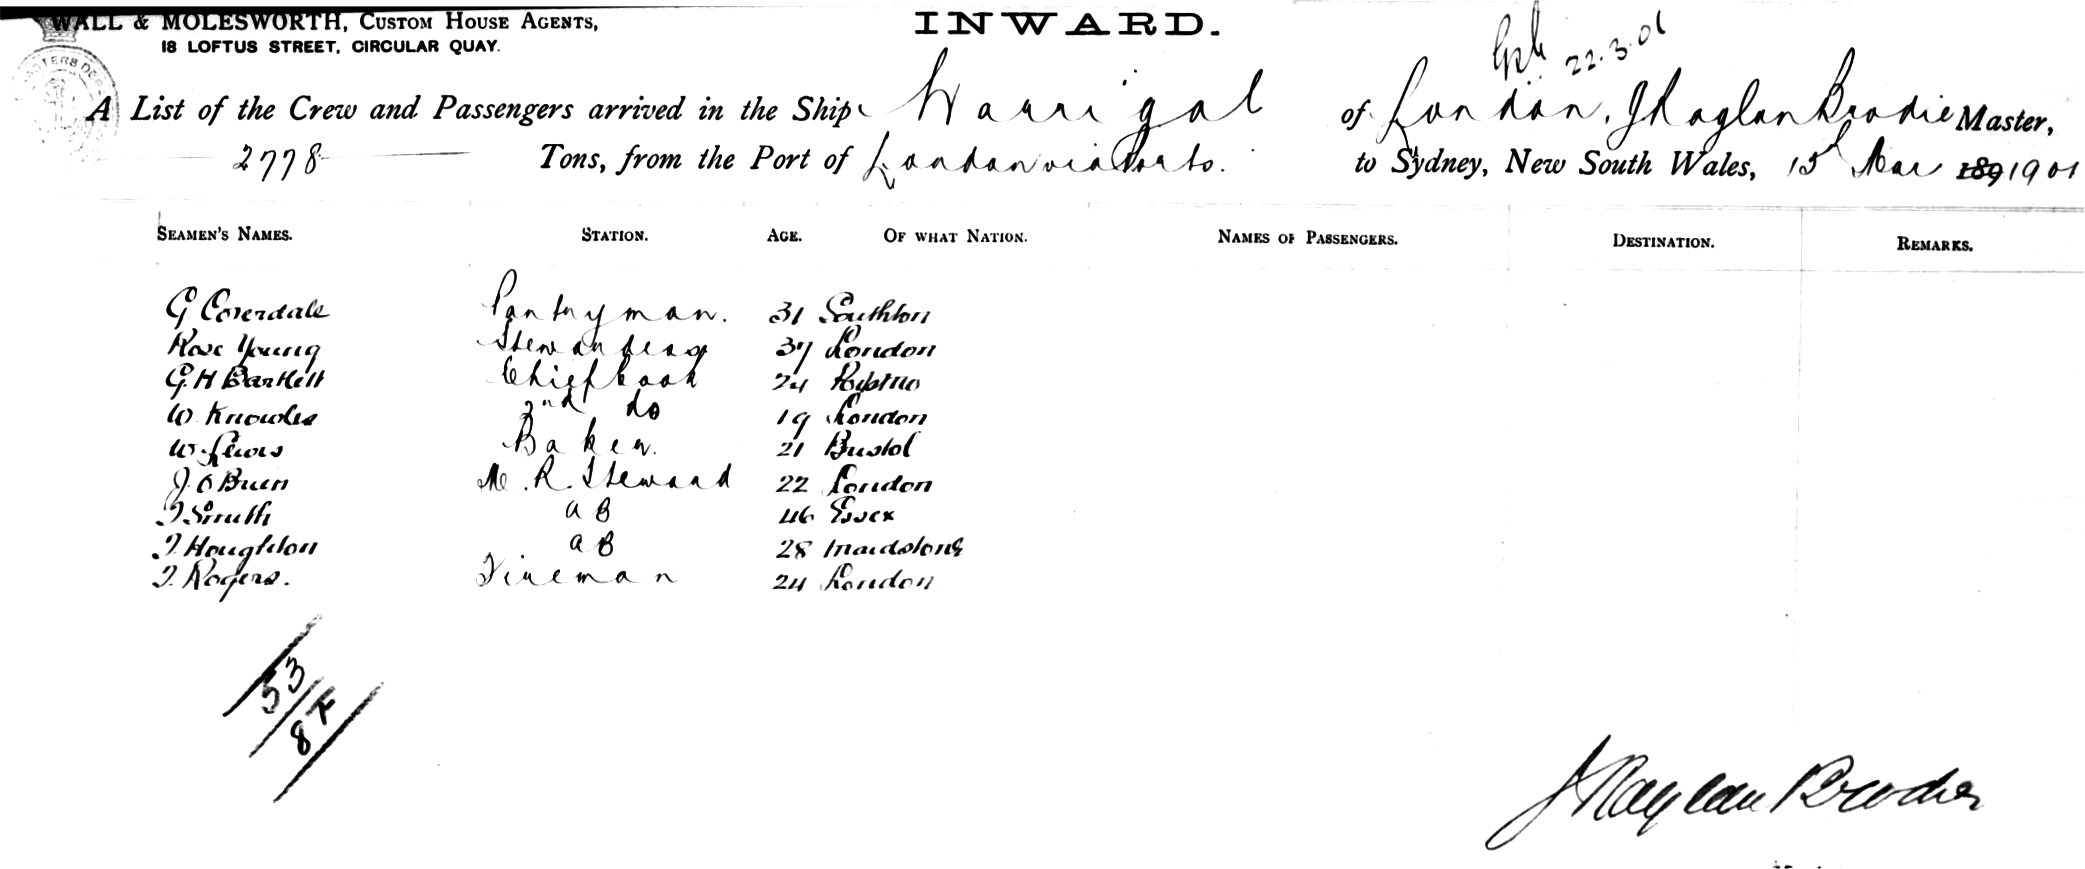 WALL & MOLESWORTH, CUSTOM HOUSE AGENTS,
18 LOFTUS STREET, CIRCULAR QUAY.
INWARD.
22.3.01
A List of the Crew and Passengers arrived in the Ship Warrigal of London, J Raglan Brodie Master,
2778 Tons, from the Port of London via Ports. to Sydney, New South Wales, 15th Mar 189 1901
SEAMEN'S NAMES. STATION. AGE. OF WHAT NATION. NAMES OF PASSENGERS. DESTINATION. REMARKS.
G Coverdale Pantryman. 31 Southton
Rose Young Stewardess 37 London
G. H Bartlett Chief Cook 24
W Knowles 2nd do 19 London
W Lewis Baker. 21 Bristol
J. O Brien M. R. Steward 22 London
J Smith AB 46 Essex
J Houghton AB 28 Maidstone
J. Rogers. Fireman 24 London
53
8 F
J Raglan Brodie